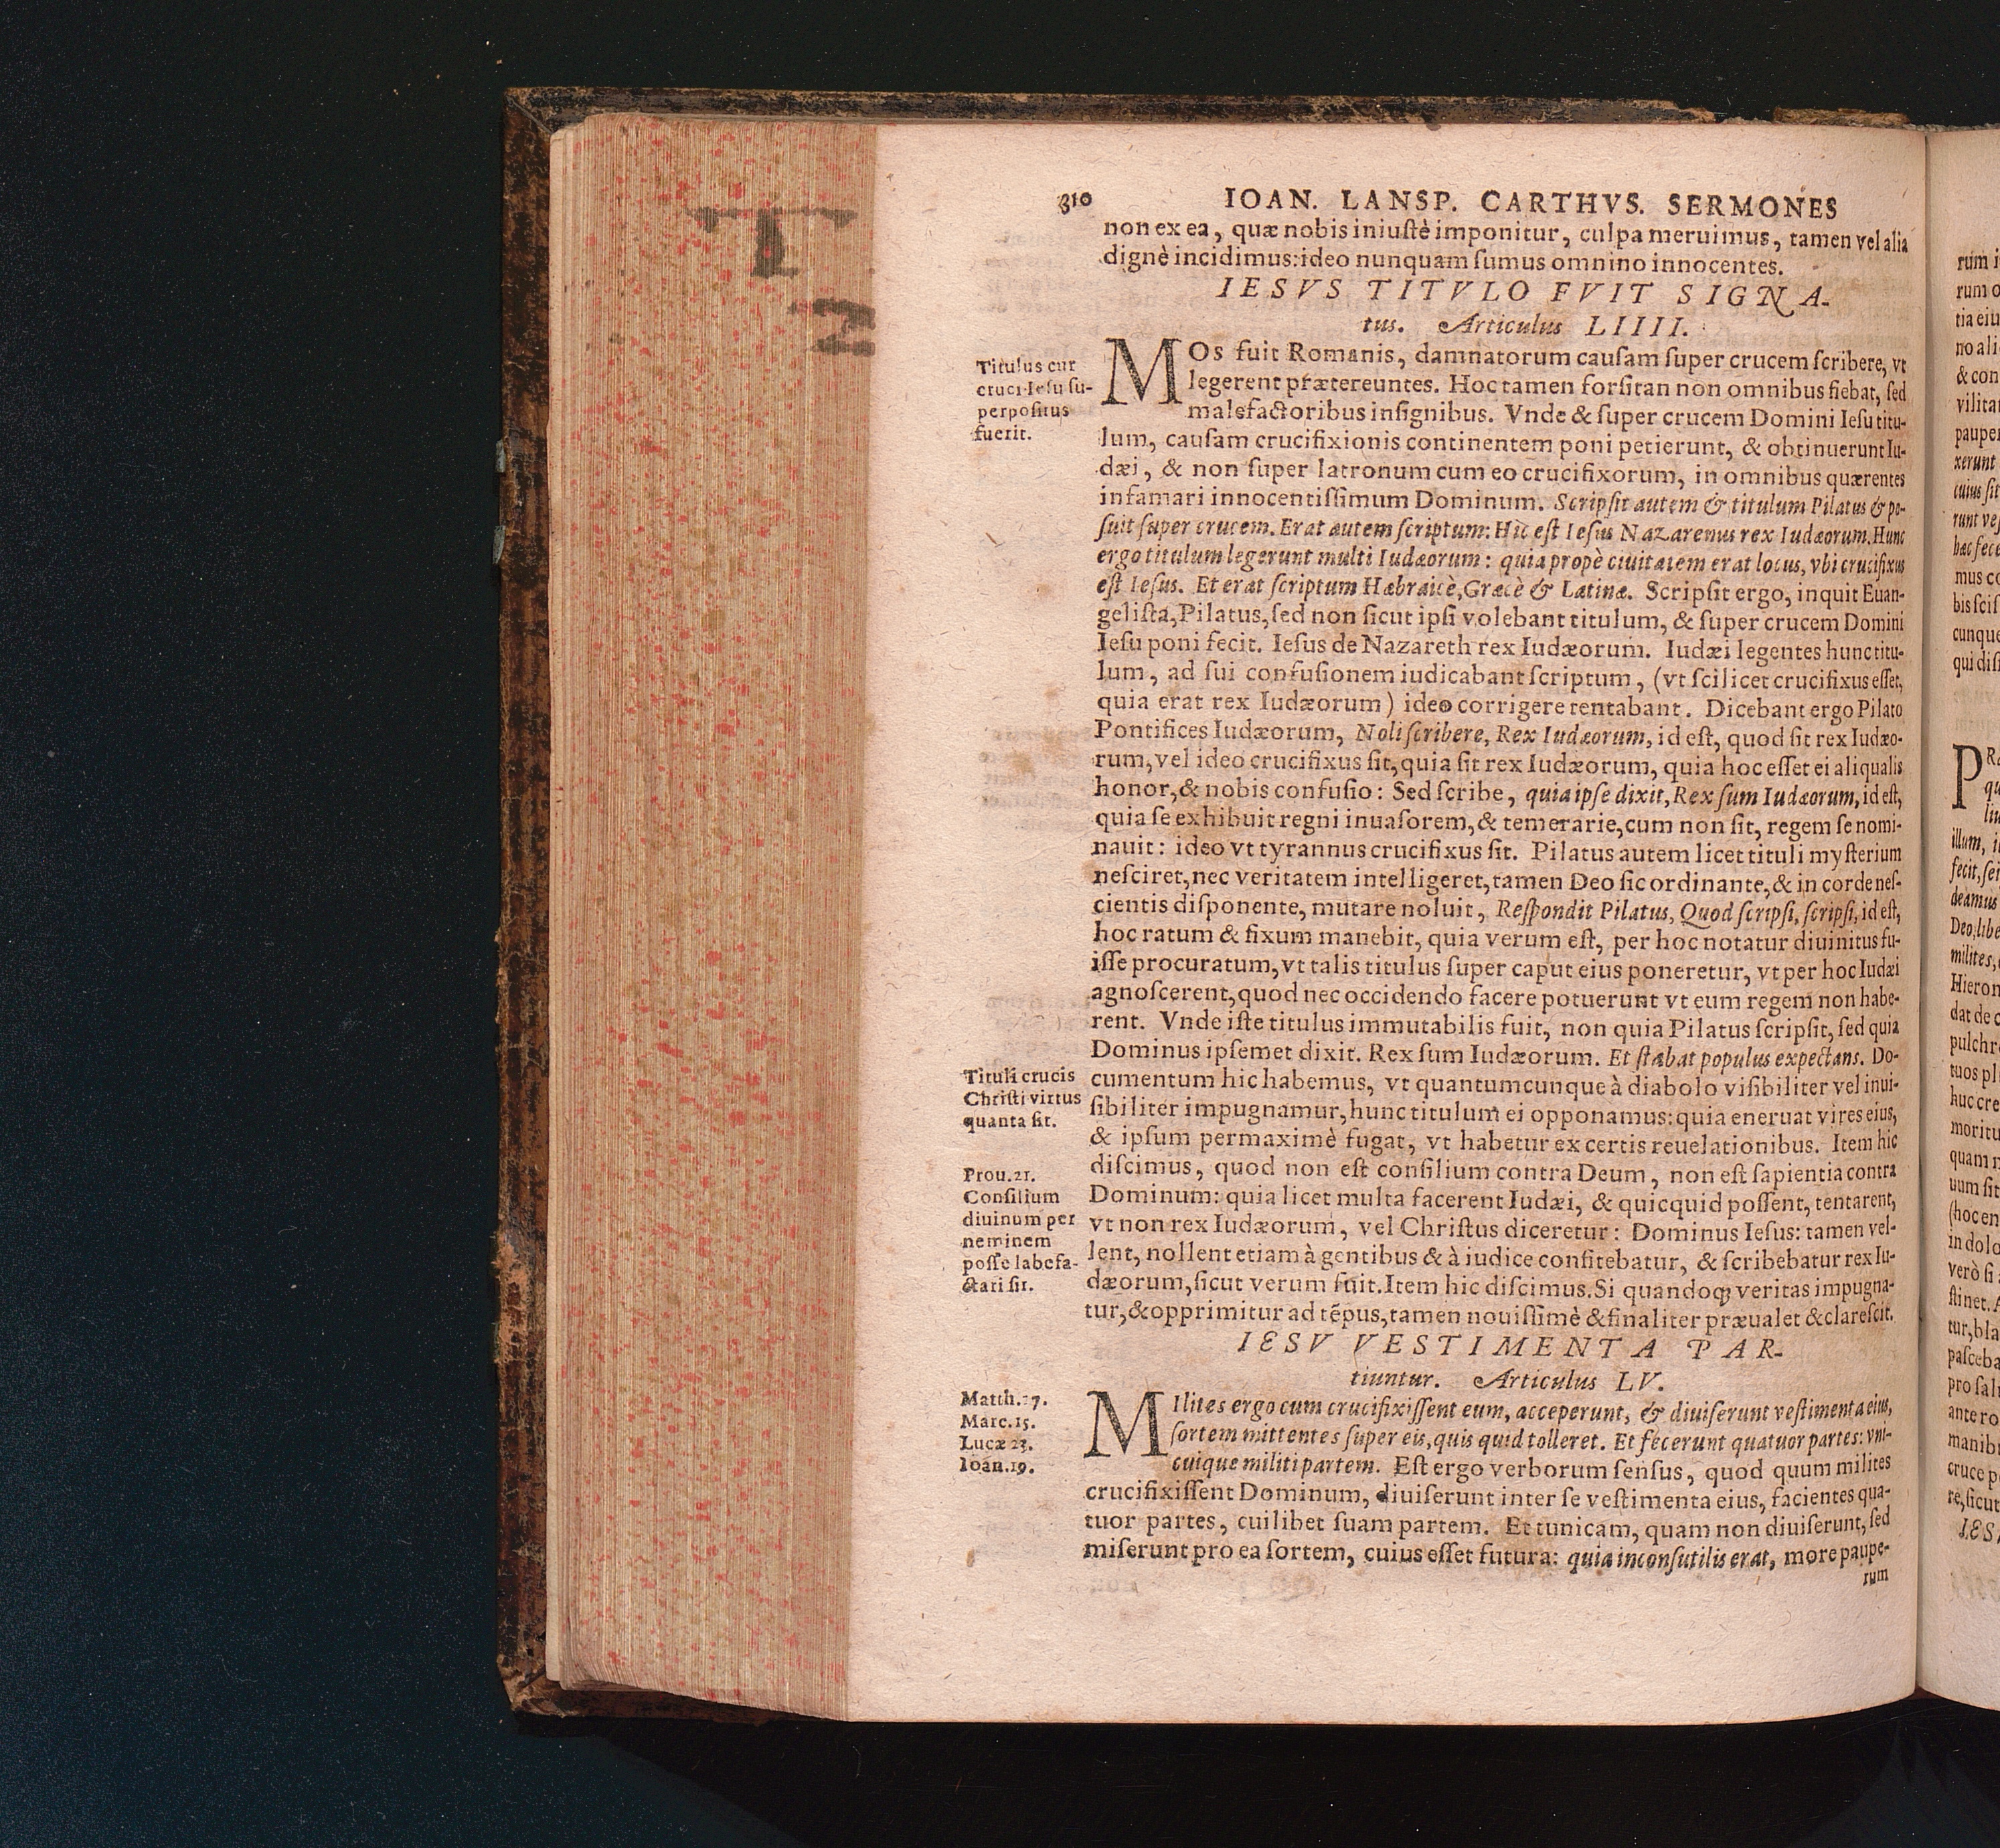 310 IOAN. LANSP. CARTHVS. SERMONES
non ex ea, quæ nobis iniuſtè imponitur, culpa meruimus, tamen vel alia
dignè incidimus: ideo nunquam ſumus omnino innocentes.
IESVS TITVLO FVIT SIGNA-
tus. Articulus LIIII.
Titulus cur
cruci Ieſu ſu-
perpoſitus
fuerit.
MOs fuit Romanis, damnatorum cauſam ſuper crucem ſcribere, vt
legerent prætereuntes. Hoc tamen forſitan non omnibus fiebat, ſed
malefactoribus inſignibus. Vnde & ſuper crucem Domini Ieſu titu-
lum, cauſam crucifixionis continentem poni petierunt, & obtinuerunt Iu-
dæi, & non ſuper latronum cum eo crucifixorum, in omnibus quærentes
infamari innocentiſſimum Dominum. Scripſit autem & titulum Pilatus & po-
ſuit ſuper crucem. Erat autem ſcriptum: Hic eſt Ieſus Nazarenus rex Iudæorum. Hunc
ergo titulum legerunt multi Iudæorum: quia propè ciuitatem erat locus, vbi crucifixus
eſt Ieſus. Et erat ſcriptum Hæbraicè, Græcè & Latinæ. Scripſit ergo, inquit Euan-
geliſta, Pilatus, ſed non ſicut ipſi volebant titulum, & ſuper crucem Domini
Ieſu poni fecit. Ieſus de Nazareth rex Iudæorum. Iudæi legentes hunc titu-
lum, ad ſui confuſionem iudicabant ſcriptum, (vt ſcilicet crucifixus eſſet,
quia erat rex Iudæorum) ideo corrigere tentabant. Dicebant ergo Pilato
Pontifices Iudæorum, Noli ſcribere, Rex Iudæorum, id eſt, quod ſit rex Iudæo-
rum, vel ideo crucifixus ſit, quia ſit rex Iudæorum, quia hoc eſſet ei aliqualis
honor, & nobis confuſio: Sed ſcribe, quia ipſe dixit, Rex ſum Iudæorum, id eſt,
quia ſe exhibuit regni inuaſorem, & temerarie, cum non ſit, regem ſe nomi-
nauit: ideo vt tyrannus crucifixus ſit. Pilatus autem licet tituli myſterium
neſciret, nec veritatem intelligeret, tamen Deo ſic ordinante, & in corde neſ-
cientis diſponente, mutare noluit, Reſpondit Pilatus, Quod ſcripſi, ſcripſi, id eſt,
hoc ratum & fixum manebit, quia verum eſt, per hoc notatur diuinitus fu-
iſſe procuratum, vt talis titulus ſuper caput eius poneretur, vt per hoc Iudæi
agnoſcerent, quod nec occidendo facere potuerunt vt eum regem non habe-
rent. Vnde iſte titulus immutabilis fuit, non quia Pilatus ſcripſit, ſed quia
Dominus ipſemet dixit. Rex ſum Iudæorum. Et ſtabat populus expectans. Do-
Tituli crucis
Chriſti virtus
quanta ſit.
cumentum hic habemus, vt quantumcunque à diabolo viſibiliter vel inui-
ſibiliter impugnamur, hunc titulum ei opponamus: quia eneruat vires eius,
& ipſum permaximè fugat, vt habetur ex certis reuelationibus. Item hic
Prou.21.
Conſilium
diuinum per
neminem
poſſe labefa-
ctari ſit.
diſcimus, quod non eſt conſilium contra Deum, non eſt ſapientia contra
Dominum: quia licet multa facerent Iudæi, & quicquid poſſent, tentarent,
vt non rex Iudæorum, vel Chriſtus diceretur: Dominus Ieſus: tamen vel-
lent, nollent etiam à gentibus & à iudice confitebatur, & ſcribebatur rex Iu-
dæorum, ſicut verum fuit. Item hic diſcimus. Si quandoq; veritas impugna-
tur, & opprimitur ad tẽpus, tamen nouiſſimè & finaliter præualet & clareſcit.
IESV VESTIMENTA PAR-
tiuntur. Articulus LV.
Matth.27.
Marc.15.
Lucæ 23.
Ioan.19.
MIlites ergo cum crucifixiſſent eum, acceperunt, & diuiſerunt veſtimenta eius,
ſortem mittentes ſuper eis, quis quid tolleret. Et fecerunt quatuor partes: vni-
cuique militi partem. Eſt ergo verborum ſenſus, quod quum milites
crucifixiſſent Dominum, diuiſerunt inter ſe veſtimenta eius, facientes qua-
tuor partes, cuilibet ſuam partem. Et tunicam, quam non diuiſerunt, ſed
miſerunt pro ea ſortem, cuius eſſet futura: quia inconſutilis erat, more paupe-
rum